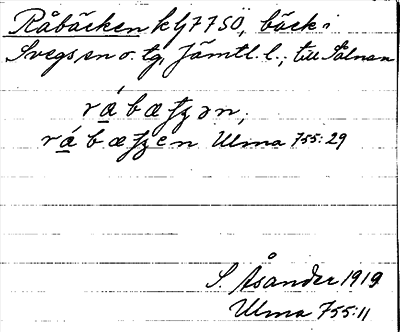 Råbäcken klj 7 7 SÖ, bäck i
Svegs sn o. tg, Jämtl. l.; till Sälnan
rábæʈʂən,
rábæʈʂen Ulma 755:29
S. Åsander 1919
Ulma 755:11